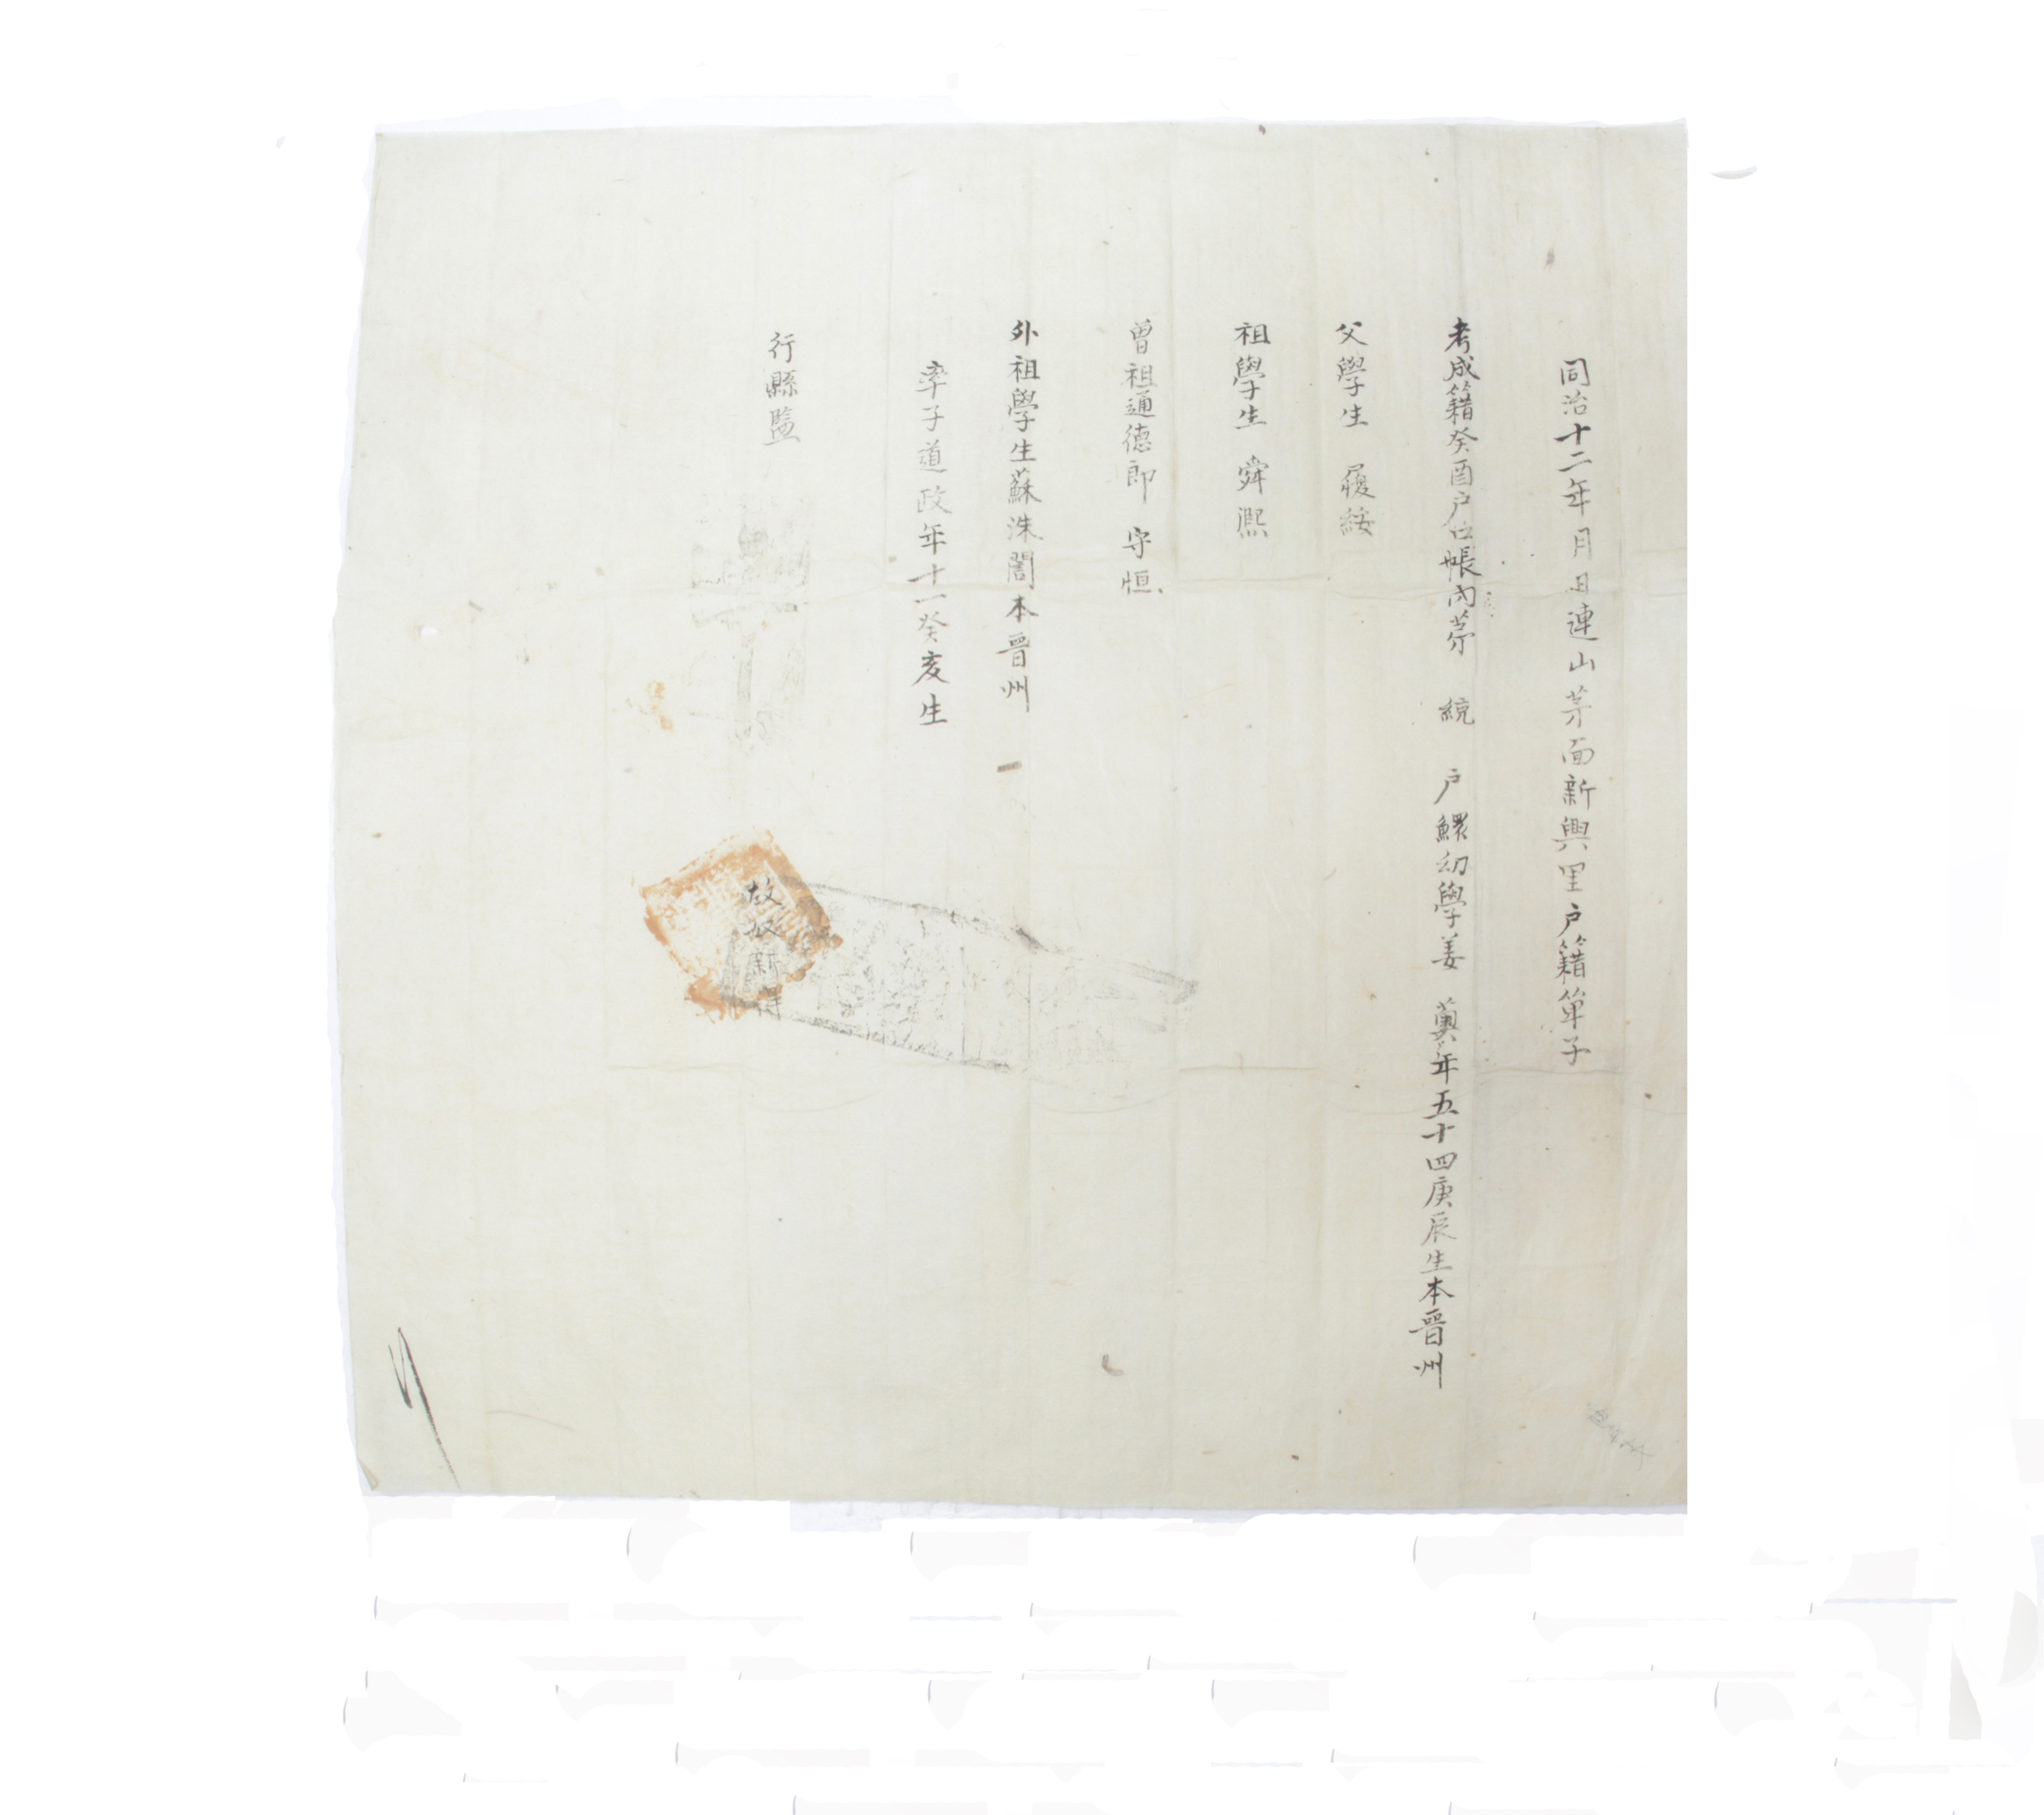 同治十二年月日連山茅面新興里户籍单子
考成籍癸酉户口帳內苐 統 户鰥幼學姜 萬年五十四庚辰生本晉州
父學生 履綏
祖學生 舜熙
曾祖通德郎 守恒
外祖學生蘇洙誾本晉州
率子道政年十一癸亥生
行縣監
故奴新得